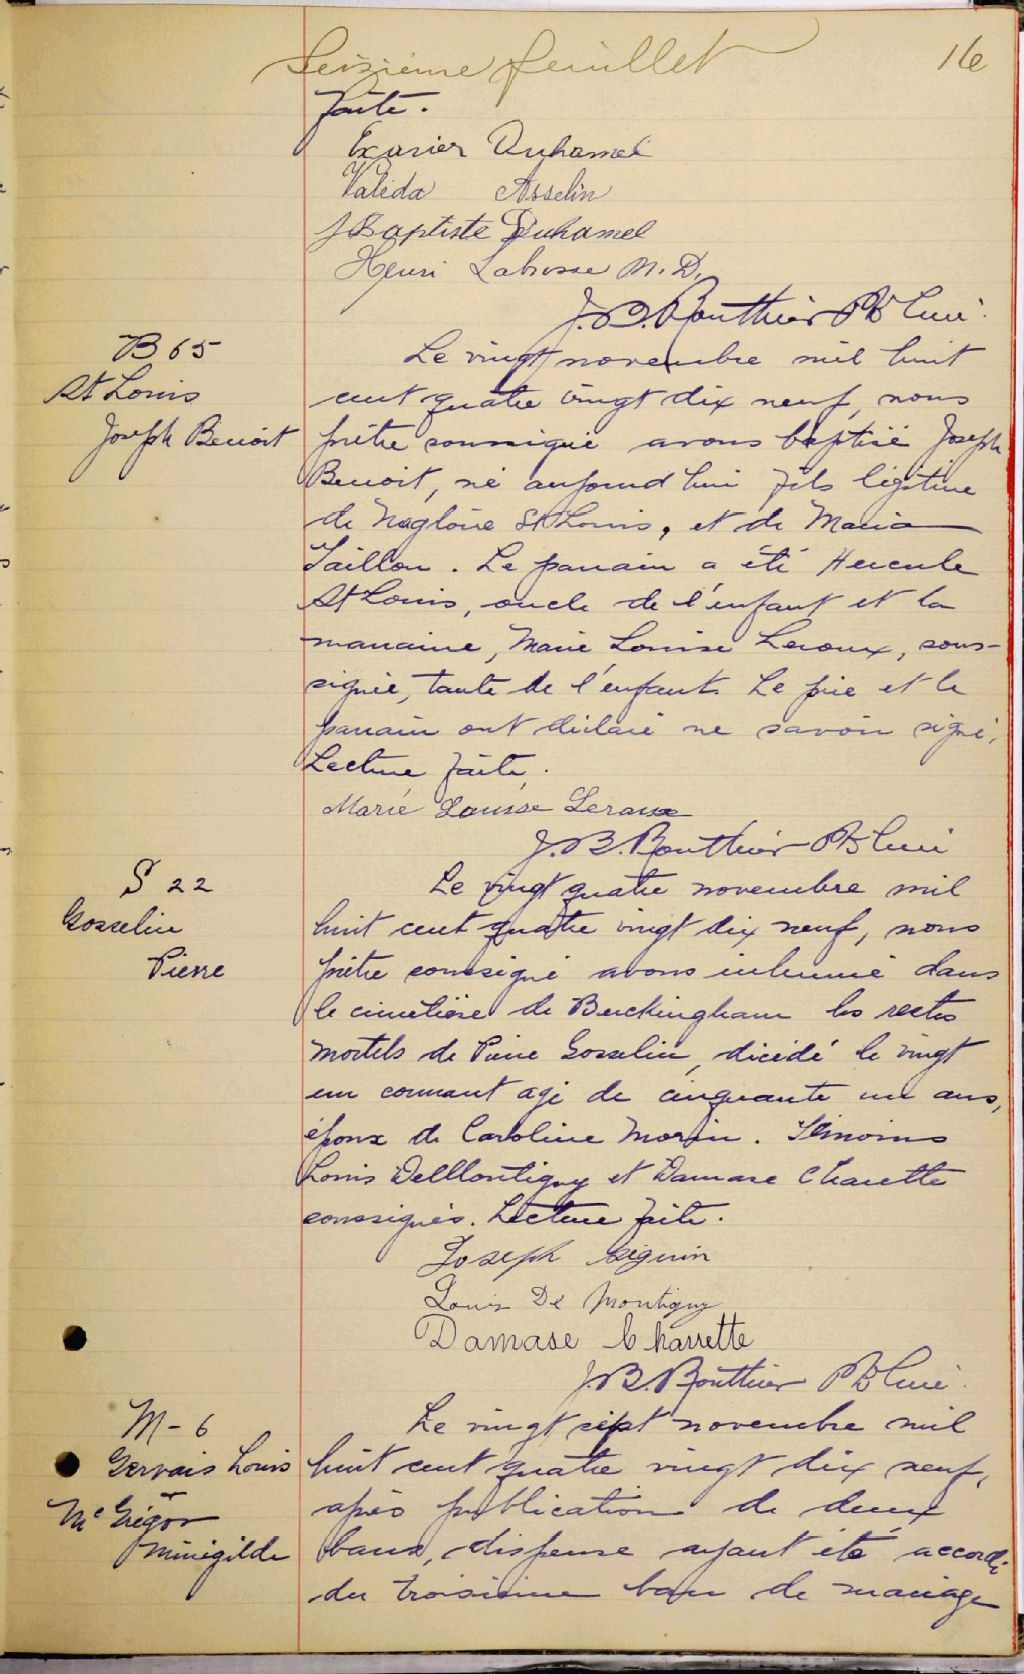 Seizième feuillet 16
faite.
Exavier Duhamel
Valéda Asselin
J Baptiste Duhamel
Henri Labrosse M.D.
J.B. Routhier Ptr Curé.
B 65
St Louis
Joseph Benoit
Le vingt novembre mil huit
cent quatre vingt dix neuf, nous
prêtre soussigné avons baptisé Joseph
Benoit, né aujourd'hui fils légitime
de Magloire St Louis, et de Maria
Taillon. Le parrain a été Hercule
St Louis, oncle de l'enfant et la
marraine, Marie Louise Leroux, sous-
signée, tante de l'enfant. Le père et le
parrain ont déclaré ne savoir signé.
Lecture faite.
Marie Louise Leroux
J.B. Routhier Ptr Curé
S 22
Gosselin
Pierre
Le vingt quatre novembre mil
huit cent quatre vingt dix neuf, nous
prêtre soussigné avons inhumé dans
le cimetière de Buckingham les restes
mortels de Pierre Gosselin, décédé le vingt
un courant agé de cinquante un ans,
époux de Caroline Morin. Témoins
Louis DeMontigny et Damase Charette
soussignés. Lecture faite.
Joseph Séguin
Louis De Montigny
Damase Charrette
J.B. Routhier Ptr Curé.
M - 6
Gervais Louis
et
Mc Grégor
Minégilde
Le vingt sept novembre mil
huit cent quatre vingt dix neuf,
après publication de deux
bans, dispense ayant été accordé
du troisième ban de mariage